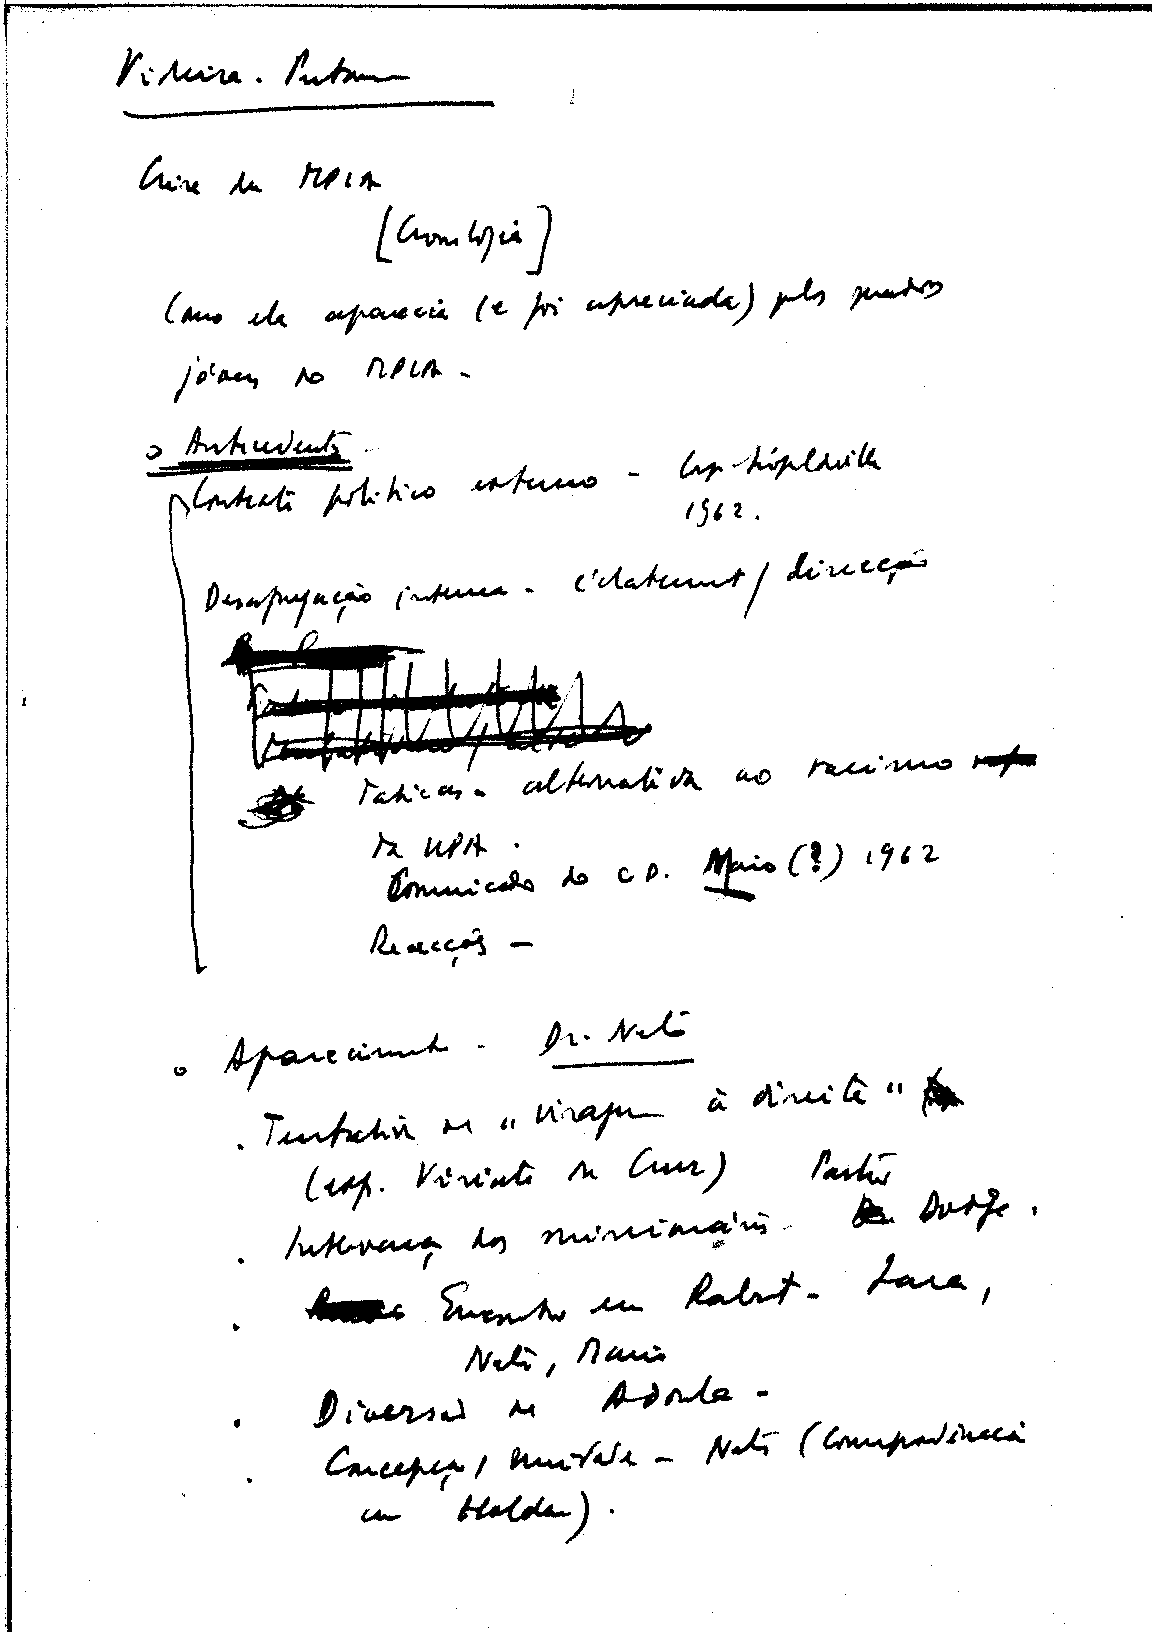 Crise do MPLA
[Cronologia]
Como ela aparecia (e foi apreciada) pelos quadros
jóvens do MPLA -
o Antecedentes -
Contexto político externo - Léopoldville
1962.
Desagregação interna - éclatement / direcção
Tácticas - alternativa ao racismo
da UPA.
Comunicado do C D. Maio (?) 1962
Reacções -
o Aparecimento - Dr. Neto
. Tentativa de "viragem à direita"
(exp. Viriato da Cruz) Pastor
. Intervenção dos missionários - Dodge.
. Encontro em Rabat - Lara,
Neto, Mario
. Diversão de Adoula -
. Concepção / unidade - Neto (Correspondência
em Holden).